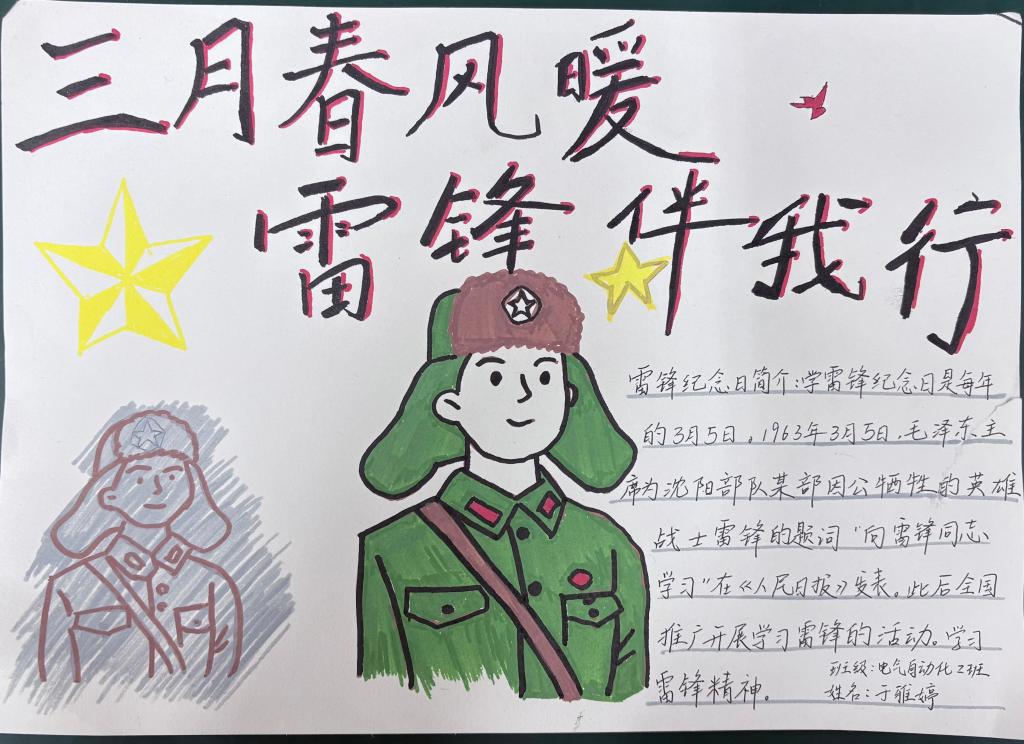 三月春风暖
雷锋伴我行
雷锋纪念日简介:学雷锋纪念日是每年
的3月5日。1963年3月5日,毛泽东主
席为沈阳部队某部因公牺牲的英雄
战士雷锋的题词“向雷锋同志
学习”在《人民日报》发表。此后全国
推广开展学习雷锋的活动。学习
雷锋精神。
班级:电气自动化2班
姓名:于雅婷